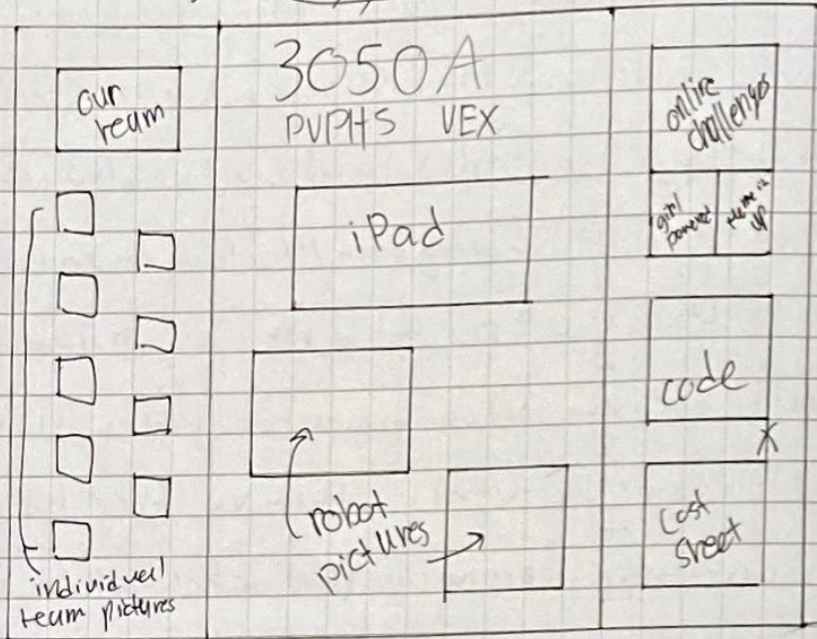 our
team
individual
team pictures
3050A
PVPHS VEX
iPad
robot
pictures
online
challenges
girl
powered
up
code
Cost
sheet